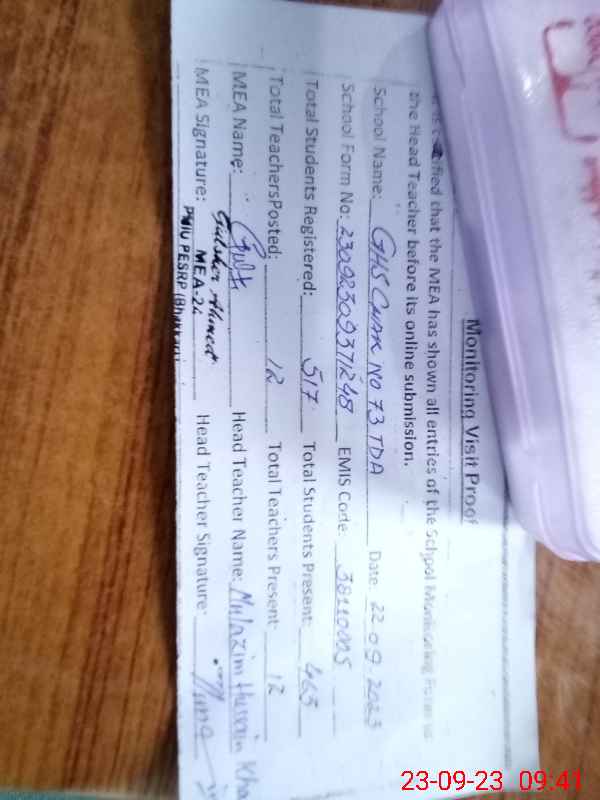 Monitoring Visit Proof
certified that the MEA has shown all entries of the School Monitoring
the Head Teacher before its online submission.
School Name: GHS Chak No 73 TDA Date: 22.09.2023
School Form No: EMIS Code
Total Students Registered: 517 Total Students Present: 463
Total TeachersPosted: 12 Total Teachers Present: 12
MEA Name: Head Teacher Name: Mulazim Hussain Kha
MEA Signature: Gulsher Ahmed Head Teacher Signature:
MEA-24
PMIU PESRP (Bhakkar)
23-09-23 09:41